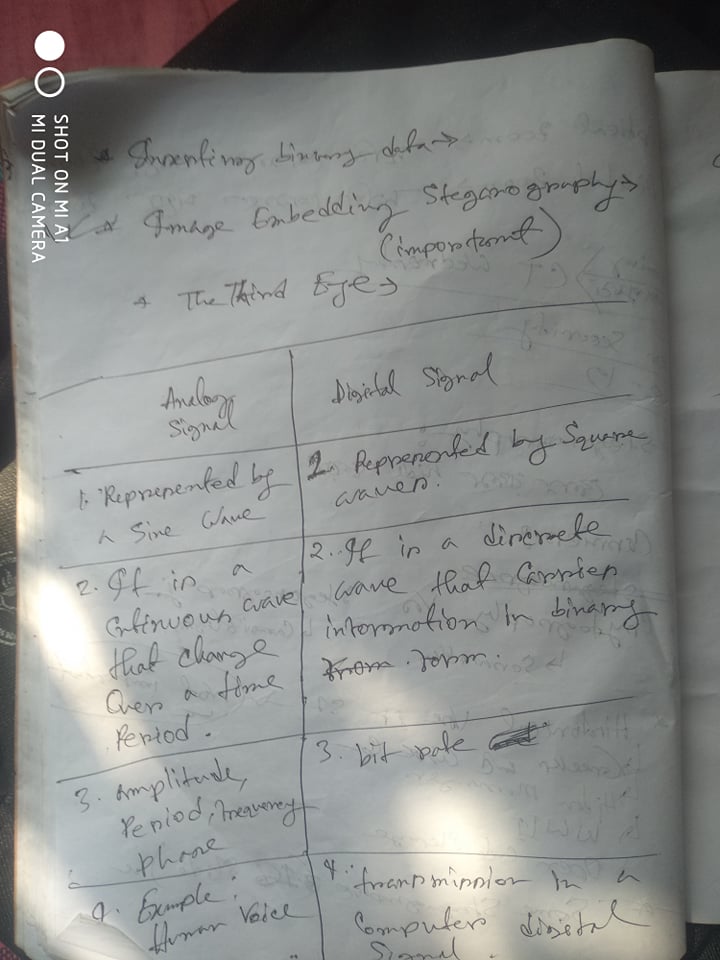 SHOT ON MI A1
MI DUAL CAMERA
* Inserting binary data →
* Image Embedding Steganography →
(important)
* The Third Eye →
Analog
Signal
Digital Signal
1. Represented by
a Sine Wave
1. Represented by Square
waves.
2. It is a
continuous wave
that change
Over a time
Period.
2. It is a discrete
wave that Carries
information in binary
form.
3. amplitude,
Period, frequency
phase
3. bit rate
4. Example:
Human Voice
4. transmission in a
Computer digital
Signal.